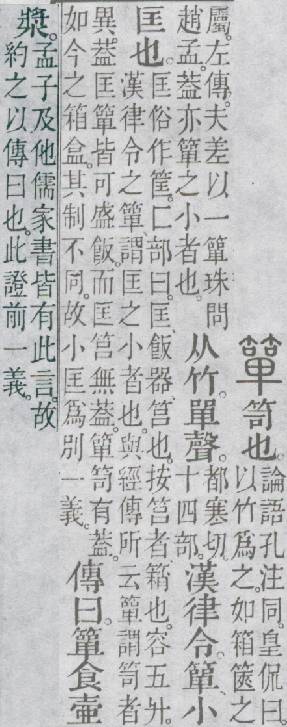 簞笥也。論語孔注同。皇侃曰。以竹爲之。如箱篋之
屬。左傳。夫差以一簞珠問趙孟。葢亦簞之小者也。从竹。單聲。都寒切。十四部。漢律令。簞、小
匡也。匡俗作筐。匚部曰。匡、飯器、筥也。按筥者、䈰也。容五升。漢律令之簞、謂匡之小者也。與經傳所云簞謂笥者
異。葢匡簞皆可盛飯。而匡筥無葢。簞笥有葢。如今之箱盒。其制不同。故小匡爲別一義。傳曰。簞食壺
漿。孟子及他儒家書皆有此言。故約之以傳曰也。此證前一義。